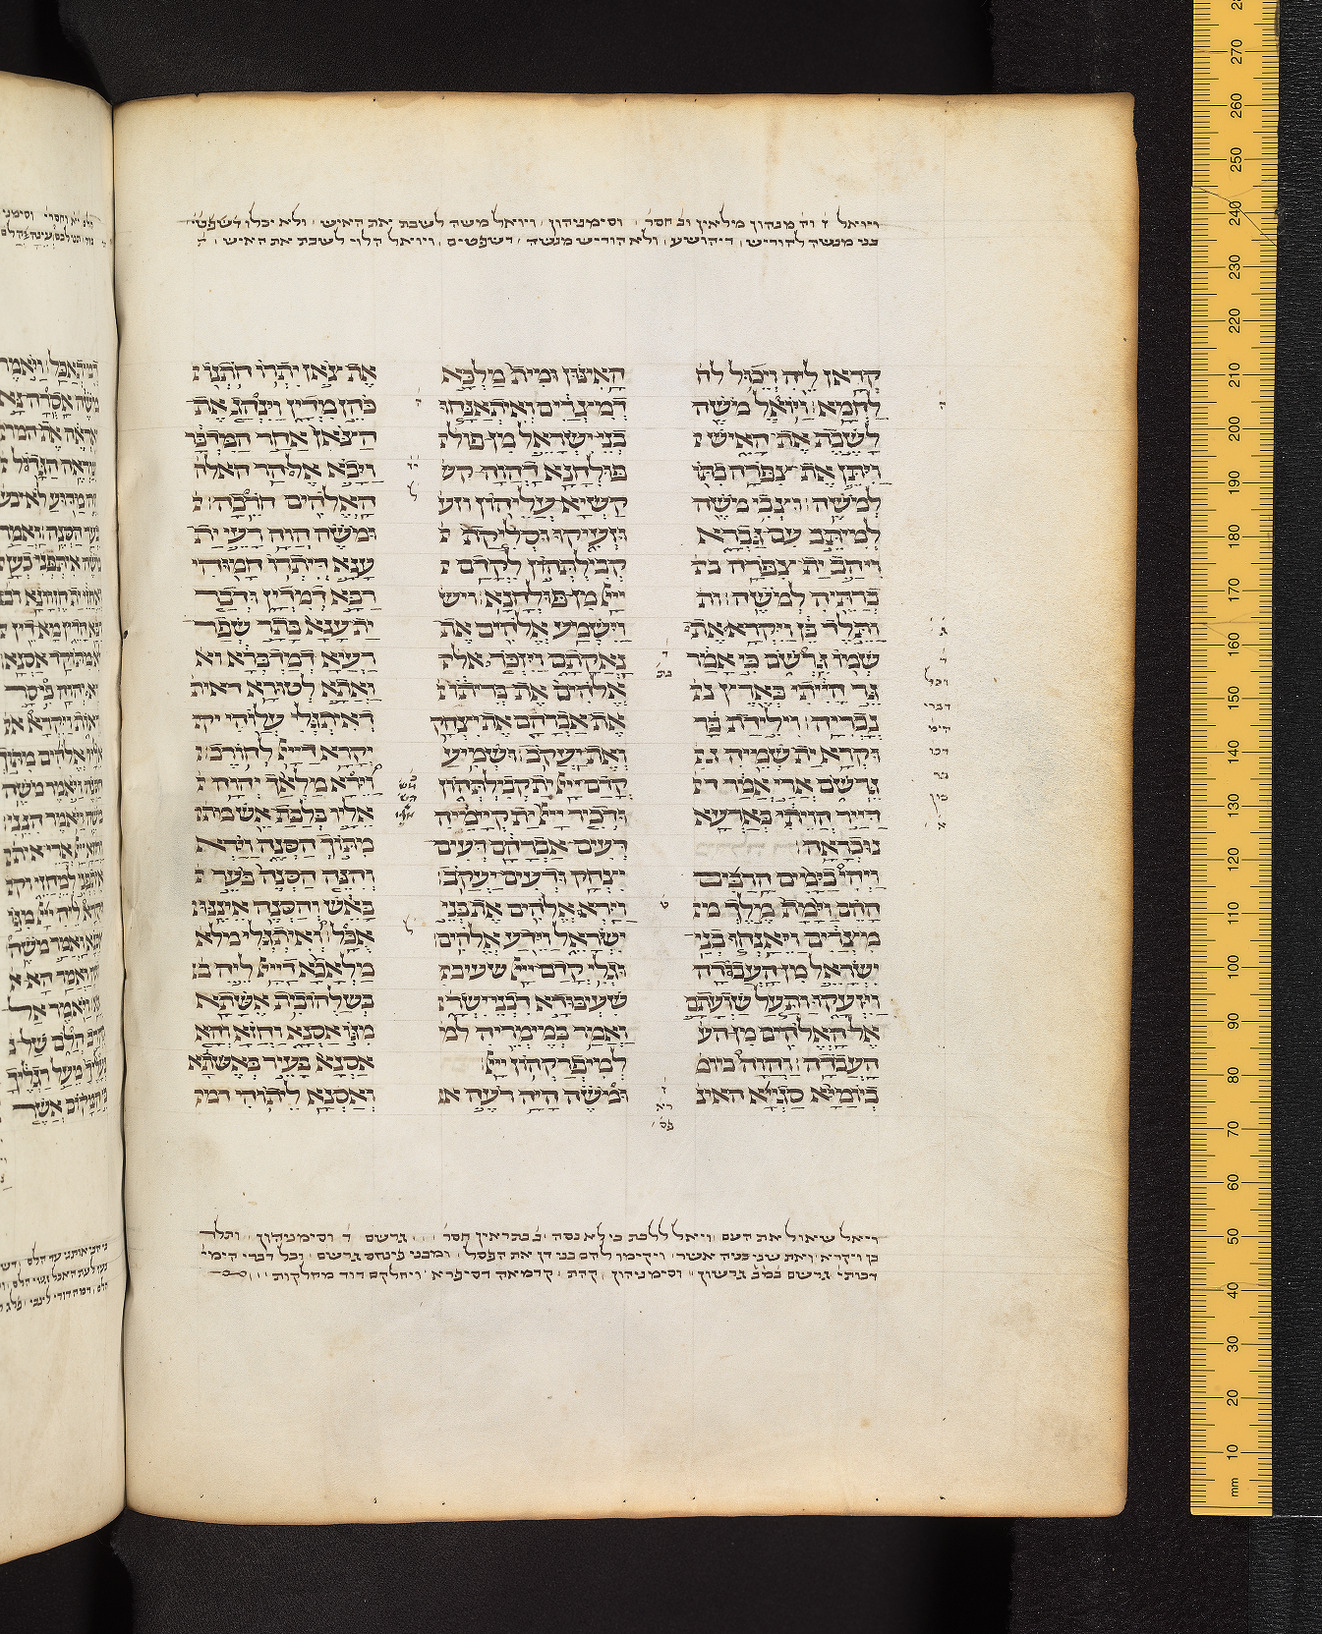 ויואל ז וה מנהון מילאין וב חסר וסימניהון ויואל משה לשבת את האיש ולא יכלו דשפטי
בני מנשה להוריש דיהושע ולא הוריש מנשה דשפטים ויואל הלוי לשבת את האיש
קְרָאן לֵיהּ וְיֵכוֹל לח
לַחְמָא וַיּוֹאֶל מֹשֶׁה
לָשֶׁבֶת אֶת הָאִישׁ ו
וַיִּתֵּן אֶת צִפֹּרָה בִתּוֹ
לְמֹשֶׁה וּצְבִי מֹשֶׁה
לְמִיתַּב עִם גַּבְרָא
וִיהַב יַת צִפֹּרָה בר
בְּרַתֵּיהּ לְמֹשֶׁה ות
וַתֵּלֶד בֵּן וַיִּקְרָא אֶת
שְׁמוֹ גֵּרְשֹׁם כִּי אָמַר
גֵּר הָיִיתִי בְּאֶרֶץ נכ
נָכְרִיָּה וִילֵידַת בַּר
וּקְרָא יַת שְׁמֵיהּ גר
גֵּרְשֹׁם אֲרֵי אֲמַר ד
דַּיָּיר הֲוֵיתִי בְּאַרְעָא
נוּכְרָאָה
וַיְהִי בַיָּמִים הָרַבִּים ה
הָהֵם וַיָּמָת מֶלֶךְ מצ
מִצְרַיִם וַיֵּאָנְחוּ בְנֵי
יִשְׂרָאֵל מִן הָעֲבֹדָה
וַיִּזְעָקוּ וַתַּעַל שַׁוְעָתָם
אֶל הָאֱלֹהִים מִן הע
הָעֲבֹדָה וַהֲוָה ביומ
בְּיוֹמַיָּא סַגִּיָּא האינ
הָאִינּוּן וּמִית מַלְכָּא
דְּמִצְרַיִם וְאִיתְאֲנַחוּ
בְּנֵי יִשְׂרָאֵל מִן פולח
פּוּלְחָנָא דַּהֲוָה קש
קַשְׁיָא עֲלֵיהוֹן וזע
וּזְעִיקוּ וּסְלִיקַת ק
קְבִלַתְהוֹן לִקְדָם
יְיָ מִן פּוּלְחָנָא ויש
וַיִּשְׁמַע אֱלֹהִים אֶת
נַאֲקָתָם וַיִּזְכֹּר אלה
אֱלֹהִים אֶת בְּרִיתוֹ
אֶת אַבְרָהָם אֶת יִצְחָק
וְאֶת יַעֲקֹב וּשְׁמִיעַ
קֳדָם יְיָ יַת קְבִלַתְהוֹן
וּדְכִיר יְיָ יַת קְיָימֵיהּ
דְּעִים אַבְרָהָם דְּעִים
יִצְחָק וּדְעִים יַעֲקֹב
וַיַּרְא אֱלֹהִים אֶת בְּנֵי
יִשְׂרָאֵל וַיֵּדַע אֱלֹהִים
וּגְלֵי קֳדָם יְיָ שעיבוד
שִׁעְבּוּדָא דִּבְנֵי יִשְׂרָ
וַאֲמַר בְּמֵימְרֵיהּ למ
לְמִיפְרַקְהוֹן יְיָ
וּמֹשֶׁה הָיָה רֹעֶה את
אֶת צֹאן יִתְרוֹ חֹתְנוֹ
כֹּהֵן מִדְיָן וַיִּנְהַג אֶת
הַצֹּאן אַחַר הַמִּדְבָּר
וַיָּבֹא אֶל הַר האלה
הָאֱלֹהִים חוֹרֵבָה
וּמֹשֶׁה הֲוָה רָעֵי יַת
עָנָא דְּיִתְרוֹ חֲמוּהִי
רַבָּא דְּמִדְיָן וּדְבַר
יַת עָנָא בָּתַר שְׁפַר
רַעֲיָא דְּמַדְבְּרָא וא
וַאֲתָא לְטוּרָא דאית
דְּאִיתְגְּלִי עֲלוֹהִי יק
יְקָרָא דַּייָ לְחוֹרֵב
וַיֵּרָא מַלְאַךְ יְהוָה
אֵלָיו בְּלַבַּת אֵשׁ מיתו
מִתּוֹךְ הַסְּנֶה וַיַּרְא
וְהִנֵּה הַסְּנֶה בֹּעֵר
בָּאֵשׁ וְהַסְּנֶה אֵינֶנּוּ
אֻכָּל וְאִיתְגְּלִי מלא
מַלְאֲכָא דַּייָ לֵיהּ בש
בְּשַׁלְהוֹבִית אֶשָּׁתָא
מִגּוֹ אַסְנָא וַחֲזָא וְהָא
אַסְנָא בָּעֵיר בְּאֶשָּׁתָא
וְאַסְנָא לֵיתוֹהִי
ויאל שאול את העם ויאל ללכת כי לא נסה ב בתראין חסר גרשם ד וסימניהון ותלד
בן ויקרא ואת שני בניה אשר ויקימו להם בני דן את הפסל ומבני פינחס גרשם וכל דברי הימי
דכותי גרשם במב גרשון וסימניהון קהת קדמאה דסיפרא ויחלקם דוד מחלקות